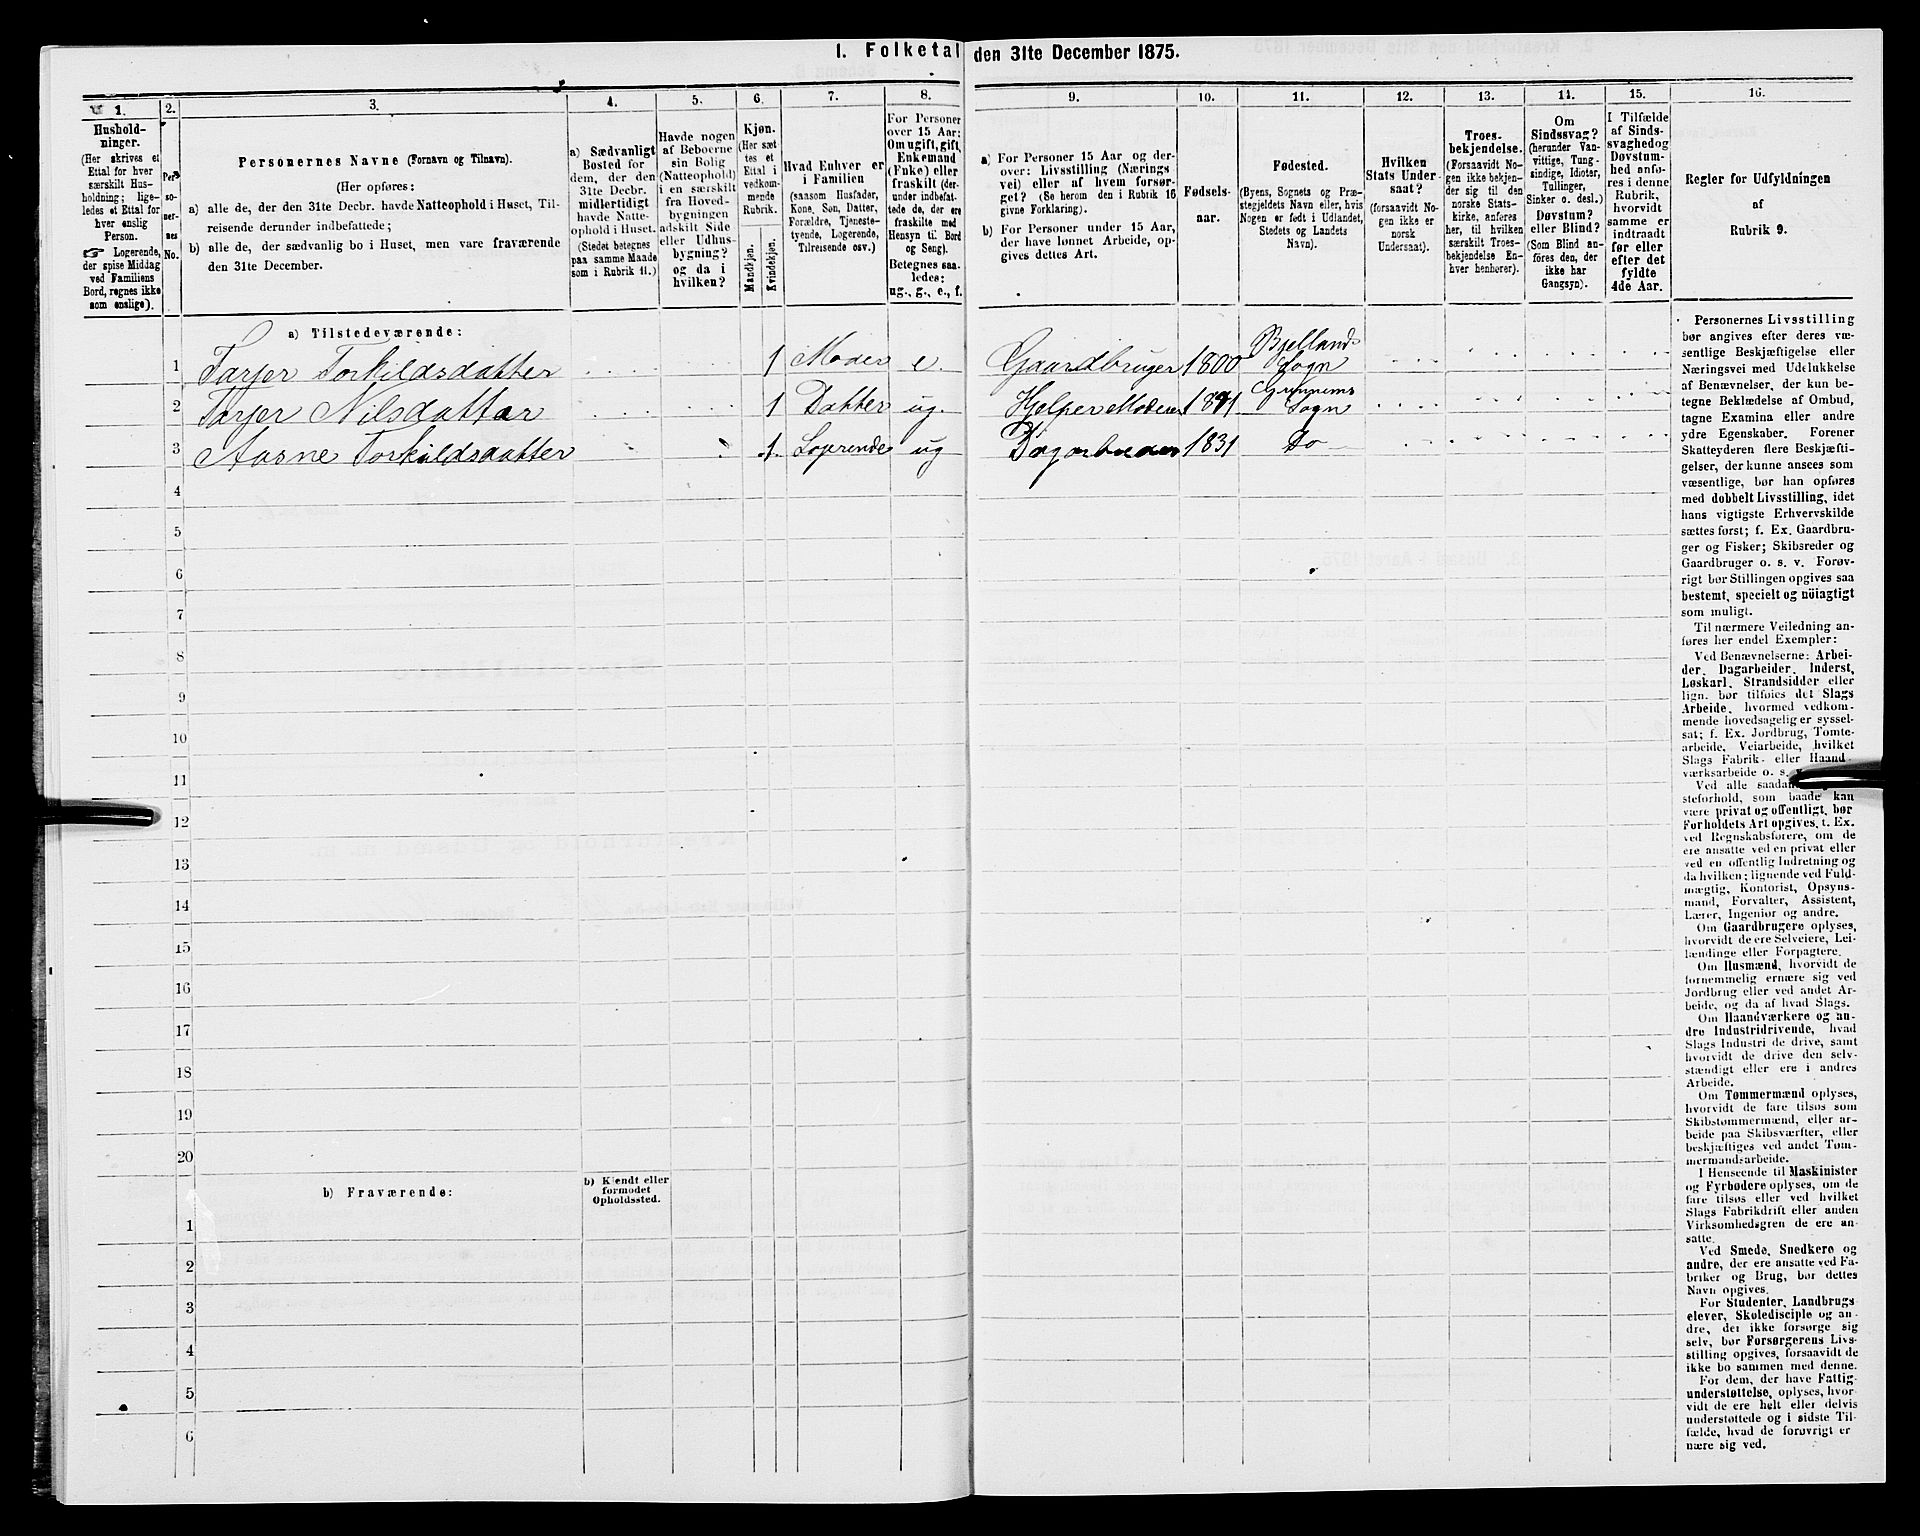 1. Folketal den 31te December 1875.
1.
2.
3.
4.
5.
6.
7.
8.
9.
10.
11.
12.
13.
14.
15.
16.
Hushold-
ninger.
(Her skrives et
Ettal for hver
særskilt Hus-
holdning; lige-
ledes et Ettal for
hver enslig
Person.
☞ Logerende,
der spise Middag
ved Familiens
Bord, regnes ikke
som enslige).
Per-
so-
ner-
nes
No.
Personernes Navne (Fornavn og Tilnavn).
(Her opføres:
a) alle de, der den 31te Decbr. havde Natteophold i Huset, Til-
reisende derunder indbefattede;
b) alle de, der sædvanlig bo i Huset, men vare fraværende
den 31te December.
a) Sædvanligt
Bosted for
dem, der den
31te Decbr.
midlertidigt
havde Natte-
ophold i Huset.
(Stedet betegnes
paa samme Maade
som i Rubrik 11.)
Havde nogen
af Beboerne
sin Bolig
(Natteophold)
i en særskilt
fra Hoved-
bygningen
adskilt Side
eller Udhus-
bygning?
og da i
hvilken?
Kjøn.
(Her sæt-
tes et
Ettal i
vedkom-
mende
Rubrik.
Mandkjøn.
Kvindekjøn.
Hvad Enhver er
i Familien
(saasom Husfader,
Kone, Søn, Datter,
Forældre, Tjeneste-
tyende, Logerende,
Tilreisende osv.)
For Personer
over 15 Aar:
Om ugift, gift,
Enkemand
(Enke) eller
fraskilt (der-
under indbefat-
tede de, der ere
fraskilte med
Hensyn til Bord
og Seng).
Betegnes saa-
ledes:
ug., g., e., f.
a) For Personer 15 Aar og der-
over: Livsstilling (Nærings-
vei) eller af hvem forsør-
get? (Se herom den i Rubrik 16
givne Forklaring).
b) For Personer under 15 Aar,
der have lønnet Arbeide, op-
gives dettes Art.
Fødsels-
aar.
Fødested.
(Byens, Sognets og Præ-
stegjeldets Navn eller, hvis
Nogen er født i Udlandet,
Stedets og Landets
Navn).
Hvilken
Stats Under-
saat?
(forsaavidt No-
gen ikke er
norsk
Undersaat).
Troes-
bekjendelse.
(Forsaavidt No-
gen ikke bekjen-
der sig til den
norske Stats-
kirke, anføres
her, til hvilken
særskilt Troes-
bekjendelse En-
hver henhører).
Om
Sindssvag?
(herunder Van-
vittige, Tung-
sindige, Idioter,
Tullinger,
Sinker o. desl.)
Døvstum?
eller Blind?
(Som Blind an-
føres den, der
ikke har
Gangsyn).
I Tilfælde
af Sinds-
svaghed og
Døvstum-
hed anfø-
res i denne
Rubrik,
hvorvidt
samme er
indtraadt
før eller
efter det
fyldte
4de Aar.
Regler for Udfyldningen
af
Rubrik 9.
a) Tilstedeværende:
1 Tarjer Torkildsdatter 1 Moder e. Gaardbruger 1800 Bjellands Sogn
2 Tarjer Nilsdatter 1 Datter ug. Hjelper Moderen 1841 Sogn
3 Aasne Torkildsdatter 1. Logerende ug 1831 Do
4
5
6
7
8
9
10
11
12
13
14
15
16
17
18
19
20
b) Fraværende:
b) Kjendt eller
formodet
Opholdssted.
1
2
3
4
5
6
Personernes Livsstilling
bør angives efter deres væ-
sentlige Beskjæftigelse eller
Næringsvei med Udelukkelse
af Benævnelser, der kun be-
tegne Beklædelse af Ombud,
tagne Examina eller andre
ydre Egenskaber. Forener
Skatteyderen flere Beskjæfti-
gelser, der kunne ansees som
væsentlige, bør han opføres
med dobbelt Livsstilling, idet
hans vigtigste Erhvervskilde
sættes først; f. Ex. Gaardbru-
ger og Fisker; Skibsreder og
Gaardbruger o. s. v. Forøv-
rigt bør Stillingen opgives saa
bestemt, specielt og nöiagtigt
som muligt.
Til nærmere Veiledning an-
føres her endel Exempler:
Ved Benævnelserne: Arbei-
der, Dagarbeider, Inderst,
Løskarl, Strandsidder eller
lign. bør tilføies det Slags
Arbeide, hvormed vedkom-
mende hovedsagelig er syssel-
sat; f. Ex. Jordbrug, Tomte-
arbeide, Veiarbeide, hvilket
Slags Fabrik- eller Haand-
værksarbeide o. s.
Ved alle saadan
steforhold, som baade kan
være privat og offentligt, bør
Forholdets Art opgives, t. Ex.
ved Regnskabsførere, om de
ere ansatte ved en privat eller
ved en offentlig Indretning og
da hvilken; lignende ved Fuld-
mægtig, Kontorist, Opsyns-
mand, Forvalter, Assistent,
Lærer, Ingeniør og andre.
Om Gaardbrugere oplyses,
hvorvidt de ere Selveiere, Lei-
lændinge eller Forpagtere.
Om Husmænd, hvorvidt de
fornemmelig ernære sig ved
Jordbrug eller ved andet Ar-
beide, og da af hvad Slags.
Om Haandværkere og an-
dre Industridrivende, hvad
Slags Industri de drive, samt
hvorvidt de drive den selv-
stændigt eller ere i andres
Arbeide.
Om Tømmermænd oplyses,
hvorvidt de fare tilsøs som
Skibstømmermænd, eller ar-
beide paa Skibsværfter, eller
beskjæftiges ved andet Tøm-
mermandsarbeide.
I Henseende til Maskinister
og Fyrbødere oplyses, om de
fare tilsøs eller ved hvilket
Slags Fabrikdrift eller anden
Virksomhedsgren de ere an-
satte.
Ved Smede, Snedkere og
andre, der ere ansatte ved Fa-
briker og Brug, bør dettes
Navn opgives.
For Studenter, Landbrugs-
elever, Skoledisciple og an-
dre, der ikke forsørge sig
selv, bør Forsørgerens Livs-
stilling opgives, forsaavidt de
ikke bo sammen med denne.
For dem, der have Fattig-
understøttelse, oplyses, hvor-
vidt de ere helt eller delvis
understøttede og i sidste Til-
fælde, hvad de forøvrigt er-
nære sig ved.